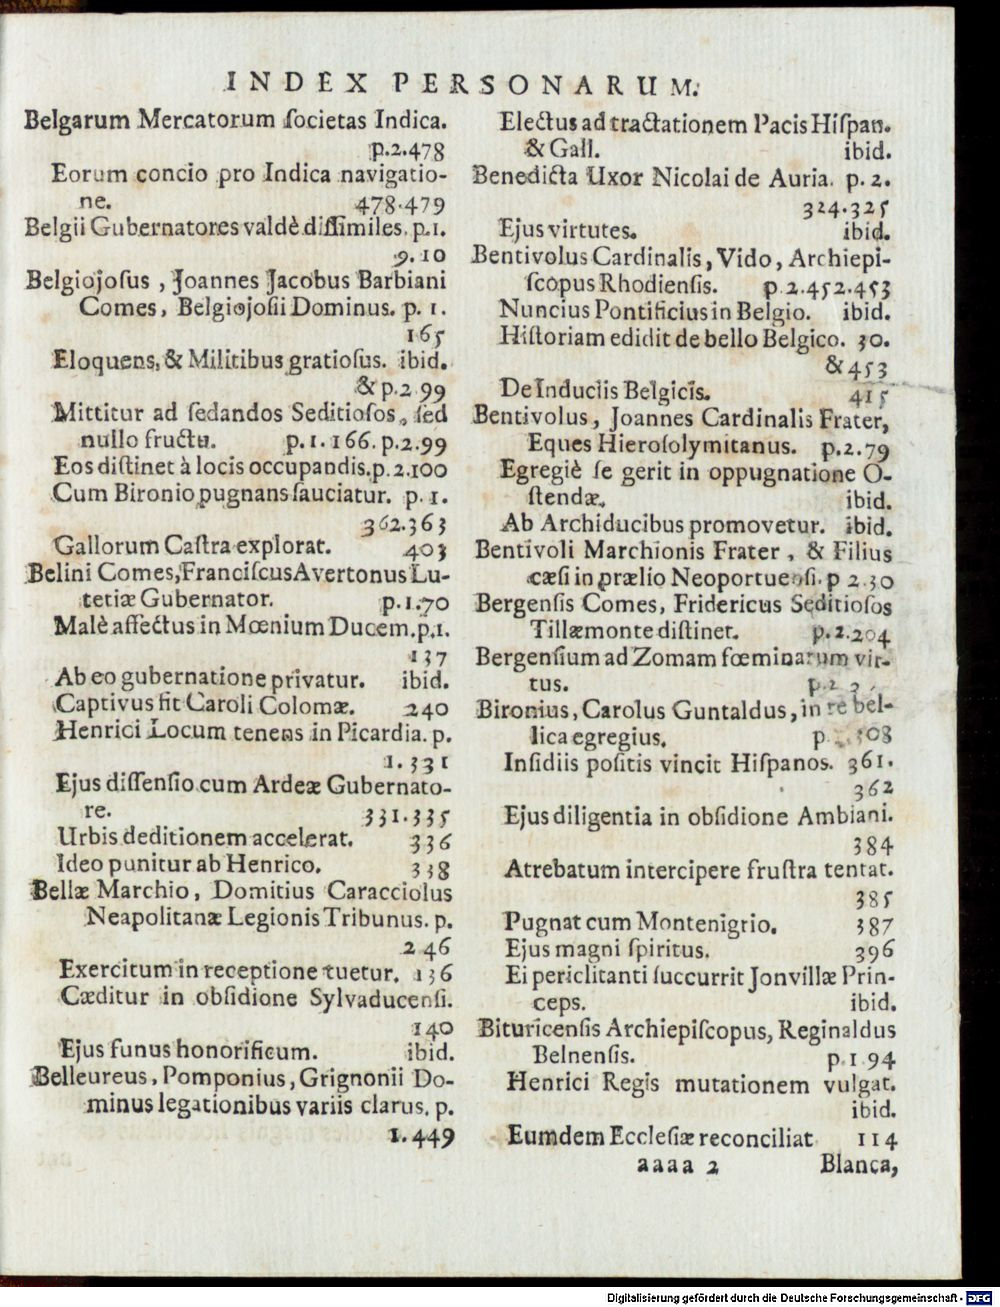 INDEX PERSONARUM.
Belgarum Mercatorum ſocietas Indica.
p.2.478
Eorum concio pro Indica navigatio-
ne. 478.479
Belgii Gubernatores valdè diſſimiles. p.1.
9.10
Belgiojoſus, Joannes Jacobus Barbiani
Comes, Belgiojoſii Dominus. p. 1.
165
Eloquens, & Militibus gratioſus. ibid.
& p.2.99
Mittitur ad ſedandos Seditioſos, ſed
nullo fructu. p.1.166. p.2.99
Eos diſtinet à locis occupandis. p.2.100
Cum Bironio pugnans ſauciatur. p. 1.
362.363
Gallorum Caſtra explorat. 403
Belini Comes, Franciſcus Avertonus Lu-
tetiæ Gubernator. p.1.70
Malè affectus in Mœnium Ducem. p.1.
137
Ab eo gubernatione privatur. ibid.
Captivus fit Caroli Colomæ. 240
Henrici Locum tenens in Picardia. p.
1.331
Ejus diſſenſio cum Ardeæ Gubernato-
re. 331.335
Urbis deditionem accelerat. 336
Ideo punitur ab Henrico. 338
Bellæ Marchio, Domitius Caracciolus
Neapolitanæ Legionis Tribunus. p.
2 46
Exercitum in receptione tuetur. 136
Cæditur in obſidione Sylvaducenſi.
140
Ejus funus honorificum. ibid.
Belleureus, Pomponius, Grignonii Do-
minus legationibus variis clarus. p.
1.449
Electus ad tractationem Pacis Hiſpan.
& Gall. ibid.
Benedicta Uxor Nicolai de Auria. p. 2.
324.325
Ejus virtutes. ibid.
Bentivolus Cardinalis, Vido, Archiepi-
ſcopus Rhodienſis. p.2.452.453
Nuncius Pontificius in Belgio. ibid.
Hiſtoriam edidit de bello Belgico. 30.
& 453
De Induciis Belgicis. 415
Bentivolus, Joannes Cardinalis Frater,
Eques Hieroſolymitanus. p.2.79
Egregiè ſe gerit in oppugnatione O-
ſtendæ. ibid.
Ab Archiducibus promovetur. ibid.
Bentivoli Marchionis Frater, & Filius
cæſi in prælio Neoportuenſi. p 2.30
Bergenſis Comes, Fridericus Seditioſos
Tillæmonte diſtinet. p.2.204
Bergenſium ad Zomam fœminarum vir-
tus. p.2
Bironius, Carolus Guntaldus, in re bel-
lica egregius. p. 308
Inſidiis poſitis vincit Hiſpanos. 361.
362
Ejus diligentia in obſidione Ambiani.
384
Atrebatum intercipere fruſtra tentat.
385
Pugnat cum Montenigrio. 387
Ejus magni ſpiritus. 396
Ei periclitanti ſuccurrit Jonvillæ Prin-
ceps. ibid.
Bituricenſis Archiepiſcopus, Reginaldus
Belnenſis. p.1 94
Henrici Regis mutationem vulgat.
ibid.
Eumdem Eccleſiæ reconciliat 114
aaaa 2 Blanca,
Digitalisierung gefördert durch die Deutsche Forschungsgemeinschaft - DFG